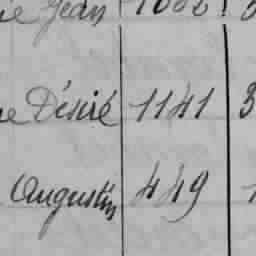 Jean 1082
Désiré 1141 3
Augustin 449